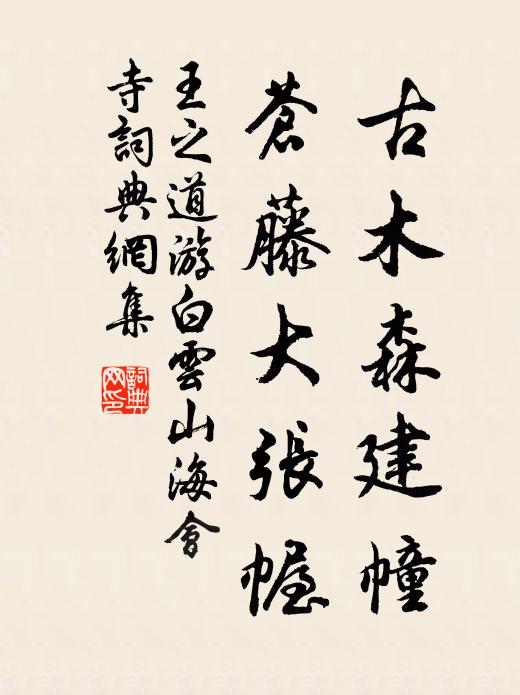 古木森建幢
蒼藤大張幄
王之道游白雲山海會
寺詞典網集
詞典網印